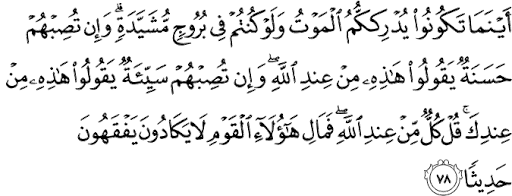 أَيْنَمَا تَكُونُوا۟ يُدْرِككُّمُ ٱلْمَوْتُ وَلَوْ كُنتُمْ فِى بُرُوجٍ مُّشَيَّدَةٍ ۗ وَإِن تُصِبْهُمْ
حَسَنَةٌ يَقُولُوا۟ هَٰذِهِۦ مِنْ عِندِ ٱللَّهِ ۖ وَإِن تُصِبْهُمْ سَيِّئَةٌ يَقُولُوا۟ هَٰذِهِۦ مِنْ
عِندِكَ ۚ قُلْ كُلٌّ مِّنْ عِندِ ٱللَّهِ ۖ فَمَالِ هَٰٓؤُلَآءِ ٱلْقَوْمِ لَا يَكَادُونَ يَفْقَهُونَ
حَدِيثًا ٧٨